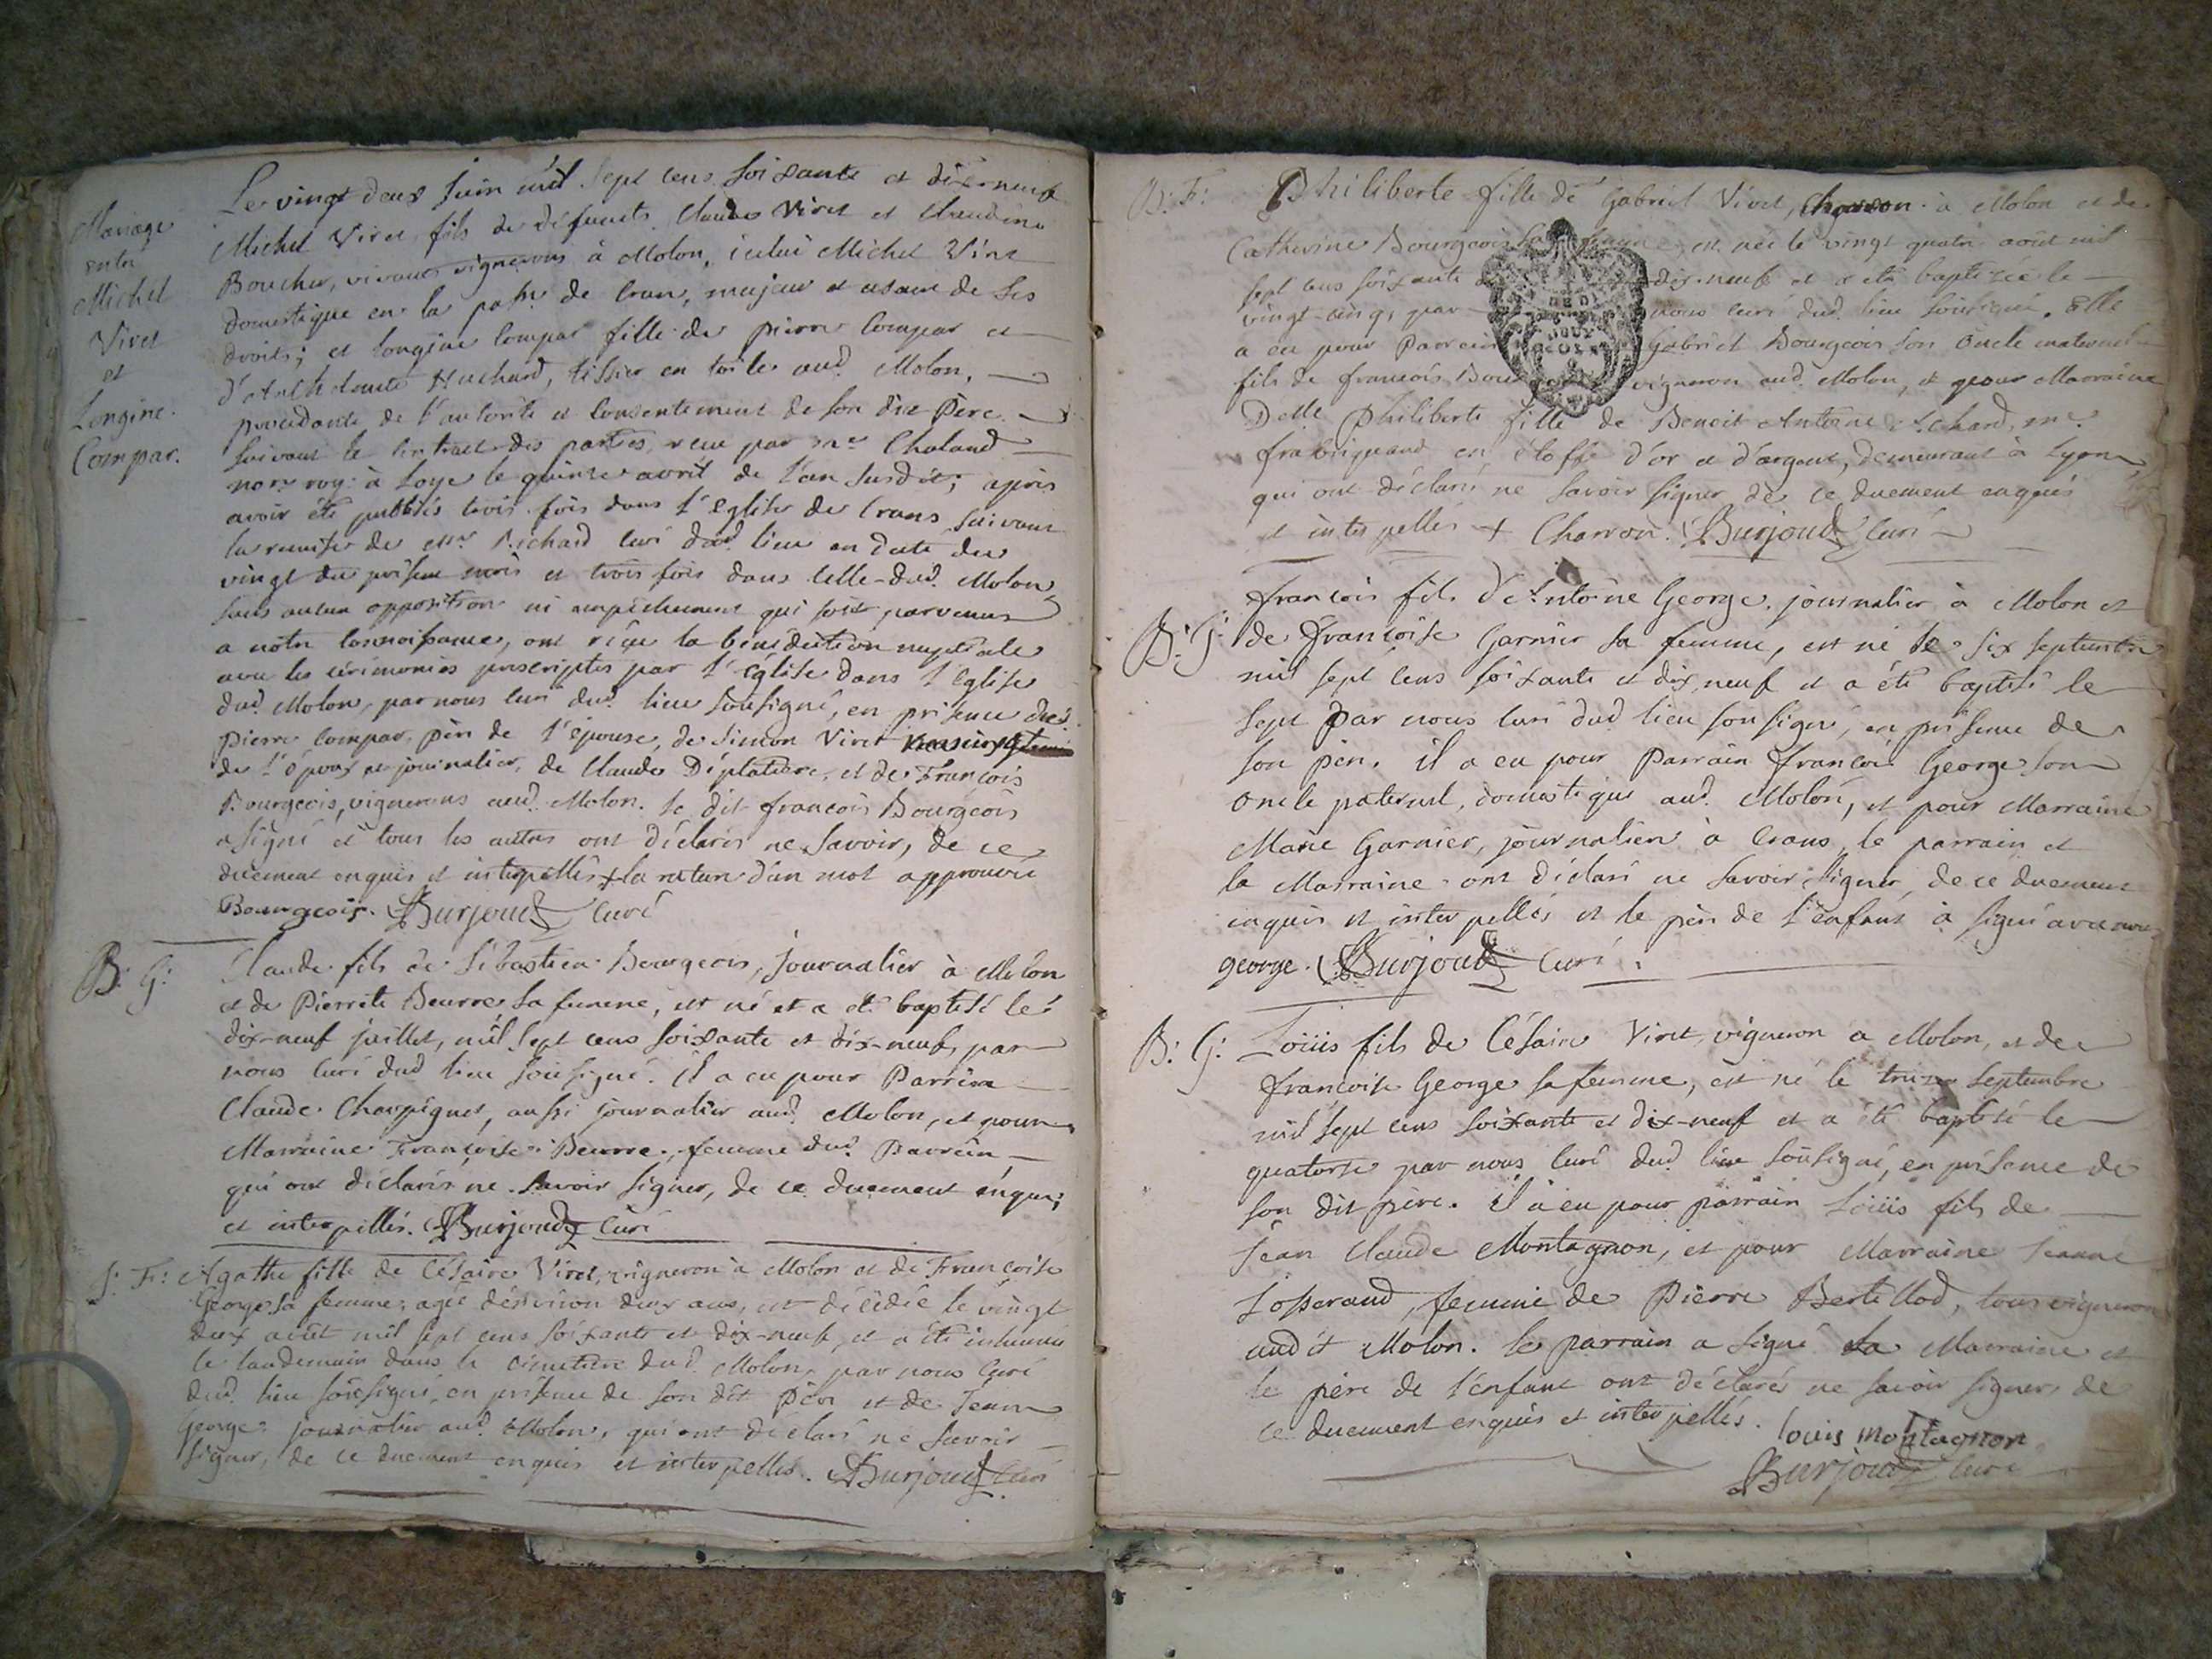 Mariage
entre
Michel
Viret
et
Longine
Compar.
Le vingt deux juin mil sept cens soixante et dix-neuf
Michel Viret fils de défunts Claude Viret et Claudine
Boucher, vivants vignerons à Molon, icelui Michel Viret
domestique en la paſse de Crans, majeur et usant de ses
droits; et Longine Compar fille de pierre Compar et
d'Anthelmette Huchard, tissier en toiles aud. Molon,
procedante de l'autorité et consentement de son dit Père
suivant le Contract des parties, reçu par me Chaland
nore roy: à Loye le quinze avril de l'an susdit; après
avoir été publiés trois fois dans l'Eglise de Crans suivant
la remise de Mre Richard Curé dud. lieu en date du
vingt du présent mois et trois fois dans celle dud. Molon,
sans aucun opposition ni empêchement qui soit parvenus
a notre Connoissance, ont reçu la bénédiction nuptiale
avec les cérémonies prescriptes par l'Église dans l'Eglise
dud. Molon, par nous Curé dud. lieu soussigné, en présence de
pierre Compar, père de l'épouse, de Simon Viret
de l'époux et journalier, de Claude Déplatière, et de François
Bourgeois, vignerons aud. Molon. le dit françois Bourgeois
a signé et tous les autres ont déclarés ne savoir, de ce
duement enquis et interpellés + la rature d'un mot approuvée
Bourgeois. Burjoud Curé
B: G: Claude fils de Sébastien Bourgeois, journalier à Molon
et de Pierrete Beurre, sa femme, est né et a été baptisé le
dix-neuf juillet, mil sept cens soixante et dix-neuf, par
nous Curé dud. lieu soussigné. il a eu pour Parrein
Claude Charpignet, aussi journalier aud. Molon, et pour
Marraine Françoise Beurre, femme dud. Parrein
qui ont déclarés ne savoir signer, de ce duement enquis
et interpellés. Burjoud Curé
S: F: Agathe fille de Césaire Viret, vigneron à Molon et de Françoise
George sa femme, agée d'environ deux ans, est décédée le vingt
deux août mil sept cens soixante et dix-neuf, et a été inhumée
le landemain dans le cimetière dud. Molon, par nous Curé
dud. lieu soussigné, en présence de son dit Père et de Jean
George journalier aud. Molon, qui ont déclaré ne savoir
signer, de ce duement enquis et interpellés. Burjoud Curé
B: F: Philiberte fille de Gabriel Viret, à Molon et de
Catherine Bourgeois sa femme, est née le vingt quatre août mil
sept cens soixante dix-neuf et a été baptisée le
vingt-cinq, par nous Curé dud. lieu soussigné. Elle
a eu pour Parrein Gabriel Bourgeois son Oncle maternel
fils de françois Bour vigneron aud. Molon, et pour Marraine
Delle Philiberte fille de Benoit Antoine me
frabriquand en étoffe d'or et d'argent, demeurant à Lyon,
qui ont déclaré ne savoir signer de ce duement enquis
et interpellés + Charron. Burjoud Curé
B: G: françois fils d'Antoine George, journalier à Molon et
de Françoise Garnier sa femme, est né le six septembre
mil sept cens soixante et dix neuf et a été baptisé le
sept par nous Curé dud lieu soussigné, en présence de
son père. il a eu pour Parrain françois George son
oncle paternel, domestique aud. Molon, et pour Marraine
Marie Garnier, journaliere à Crans, le parrain et
la Marraine ont déclaré ne savoir signer, de ce duement
enquis et interpellés et le père de l'enfant à signé avec nous
george. Burjoud Curé
B: G: Loüis fils de Césaire Viret, vigneron a Molon, et de
françoise George sa femme, est né le treize Septembre
mil sept cens soixante et dix-neuf et a été baptisé le
quatorze par nous Curé dud. lieu soussigné, en présence de
son dit père. il a eu pour parrain Loüis fils de
Jean Claude Montagnon, et pour Marraine Jeanne
Josserand, femme de Pierre Bertillod, tous vignerons
audit Molon. le parrain a signé la Marraine et
le père de l'enfant ont déclarés ne savoir signer, de
ce duement enquis et interpellés. louis montagnon
Burjoud Curé